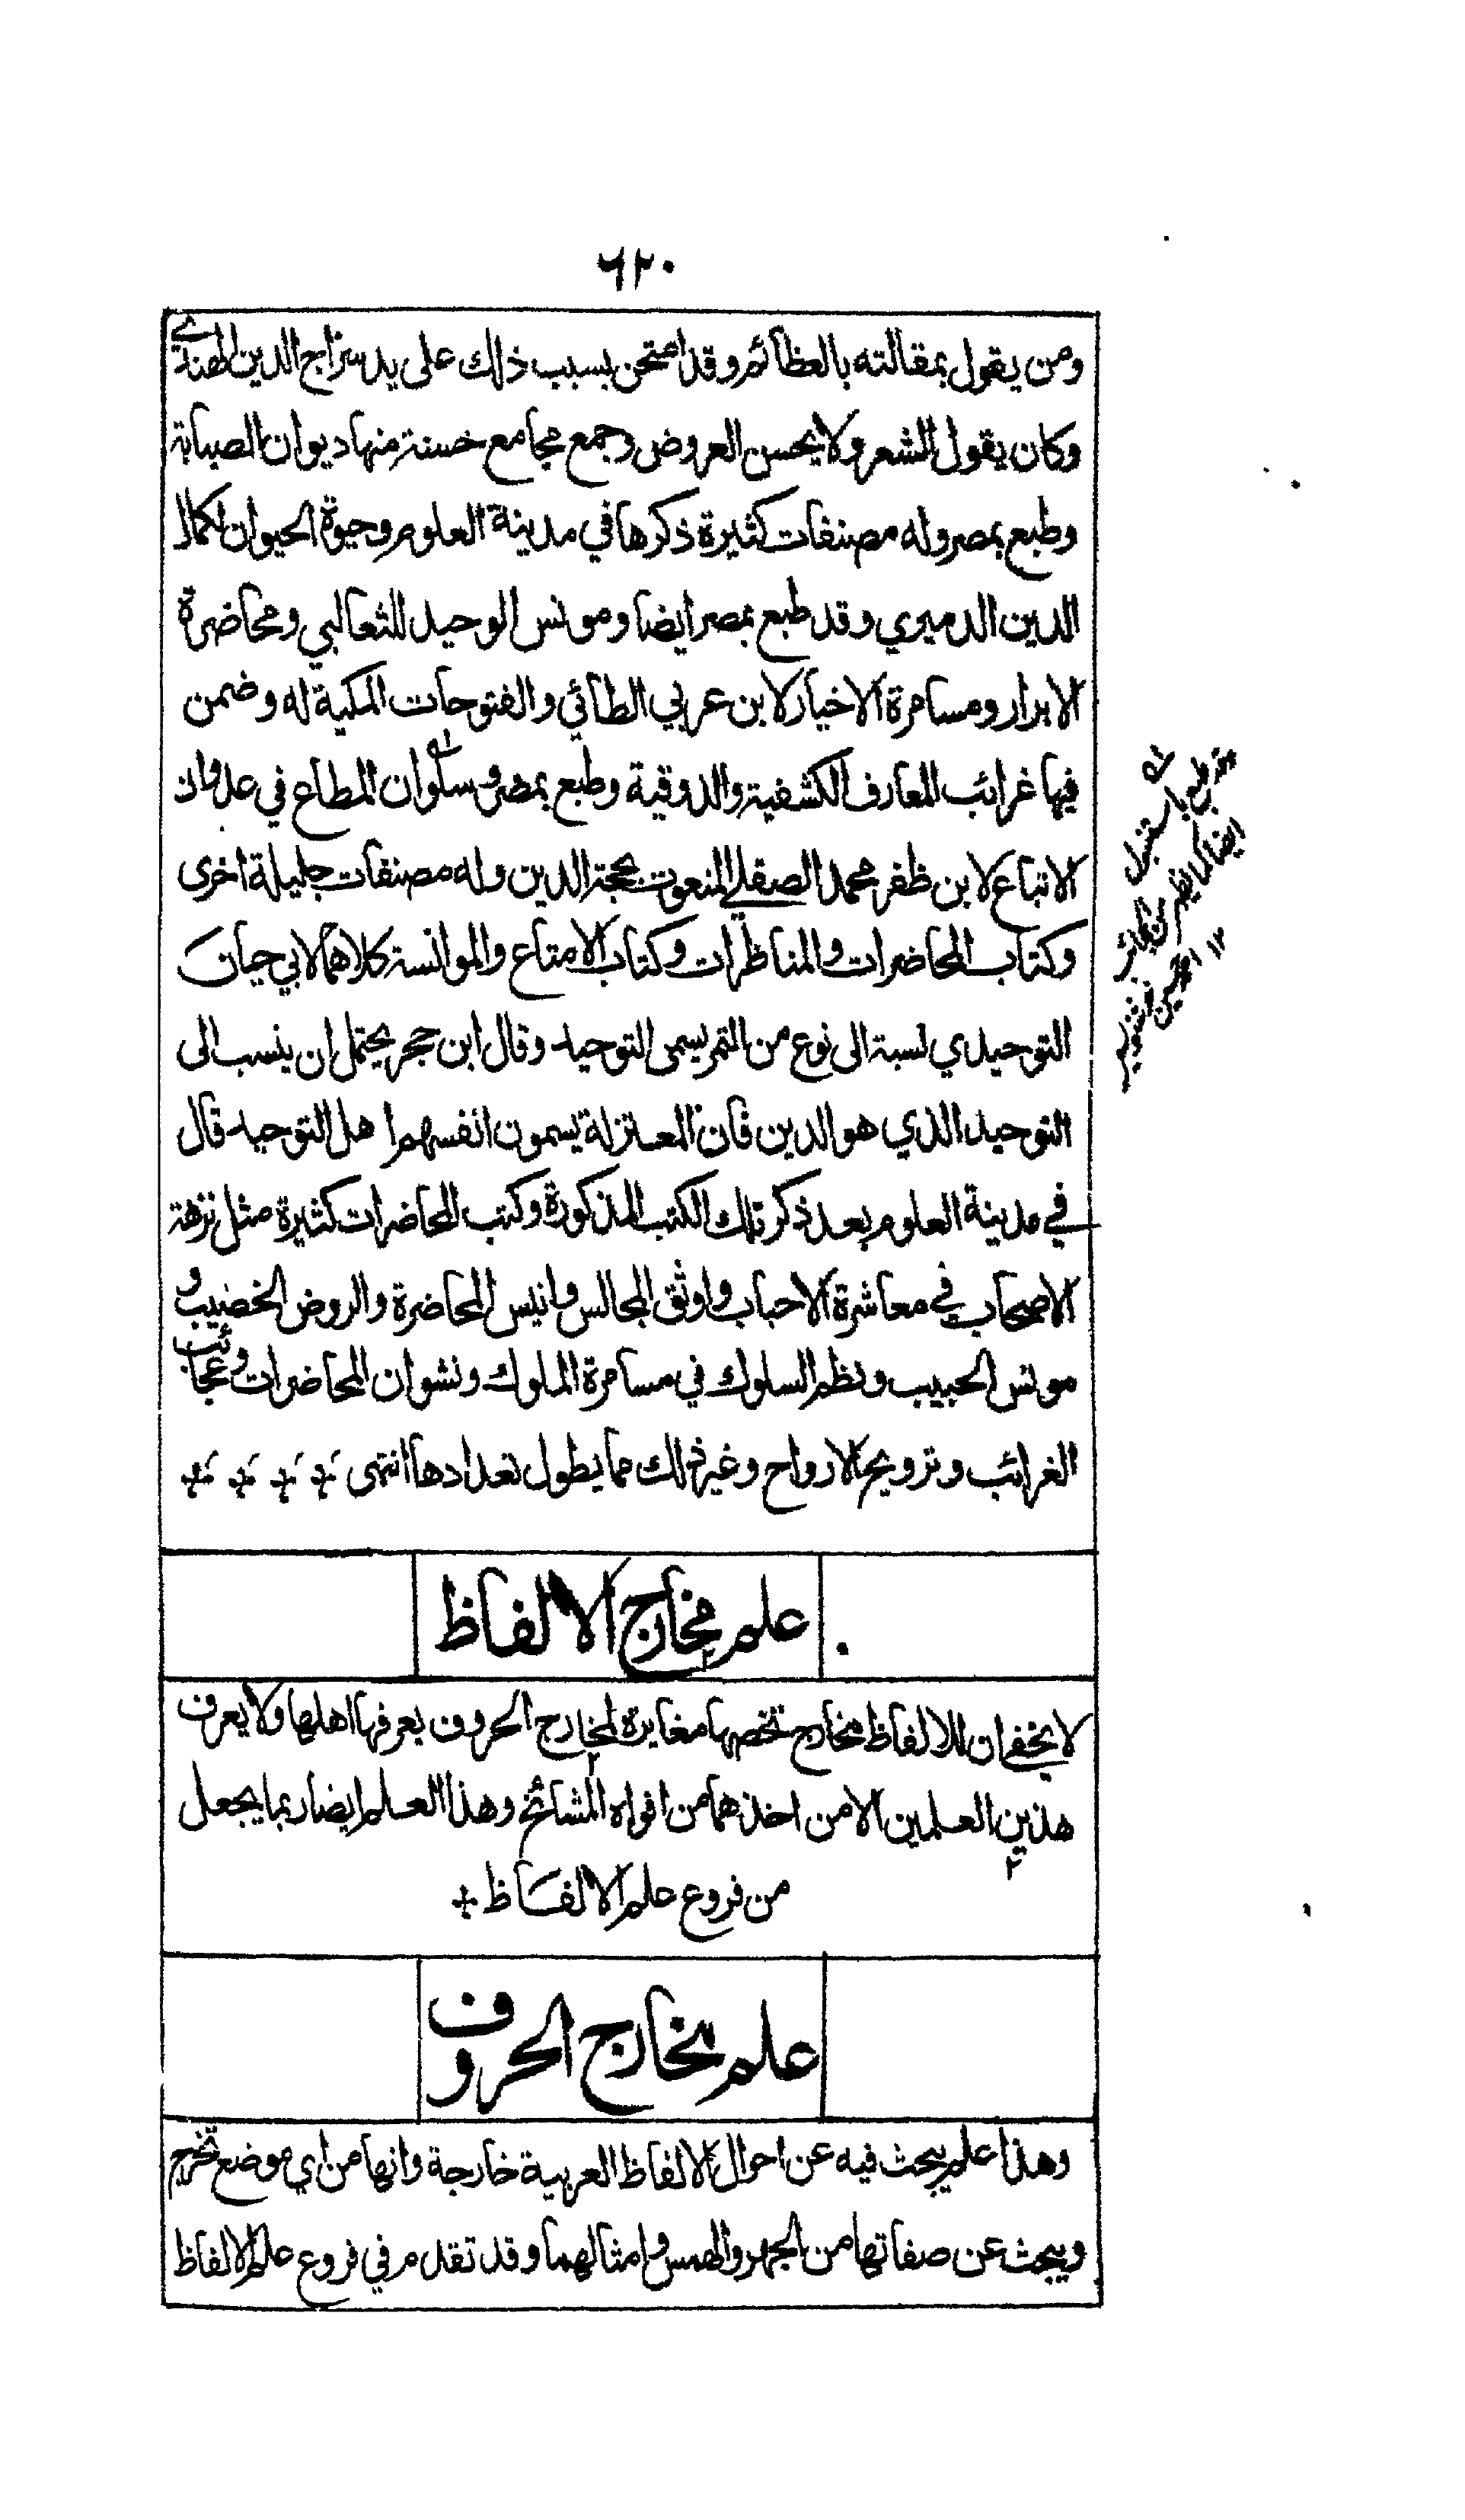 ٦٢٠
ومن يقول بمقالته بالعظائم وقد امتحن بسبب ذلك على يد سراج الدين الهندي
وكان يقول الشعر ولا يحسن العروض وجمع مجامع حسنة منها ديوان الصبابة
وطبع بمصر وله مصنفات كثيرة ذكرها في مدينة العلوم وحيوة الحيوان لكمال
الدين الدميري وقد طبع بمصر ايضا ومونس الوحيد للثعالبي ومحاضرة
الابرار ومسامرة الاخيار لابن عربي الطائي والفتوحات المكية له وضمن
فيها غرائب المعارف الكشفية والذوقية وطبع بمصر وسلوان المطاع في عدوان
الاتباع لابن ظفر محمد الصقلي المنعوت بحجة الدين وله مصنفات جليلة اخرى
وكتاب المحاضرات والمناظرات وكتاب الامتاع والموانسة كلاهما لابي حيان
التوحيدي نسبة الى نوع من التمر يسمى التوحيد وقال ابن حجر يحتمل ان ينسب الى
التوحيد الذي هو الدين فان المعتزلة يسمون انفسهم اهل التوحيد قال
في مدينة العلوم بعد ذكر تلك الكتب المذكورة وكتب المحاضرات كثيرة مثل نزهة
الاصحاب في معاشرة الاحباب واوثق المجالس وانيس المحاضرة والروض الخضيب و
مونس الحبيب ونظم السلوك في مسامرة الملوك ونشوان المحاضرات وعجائب
الغرائب وترويح الارواح وغير ذلك مما يطول تعدادها انتهى
علم مخارج الالفاظ
لا يخفى ان للالفاظ مخارج تخصها مغايرة لمخارج الحروف يعرفها اهلها ولا يعرف
هذين العلمين الا من اخذهما من افواه المشائخ وهذا العلم ايضا ربما يجعل
من فروع علم الالفاظ
علم مخارج الحروف
وهذا علم يبحث فيه عن احوال الالفاظ العربية خارجة وانها من اي موضع تخرج
ويبحث عن صفاتها من الجهر والهمس وامثالهما وقد تقدم في فروع علم الالفاظ